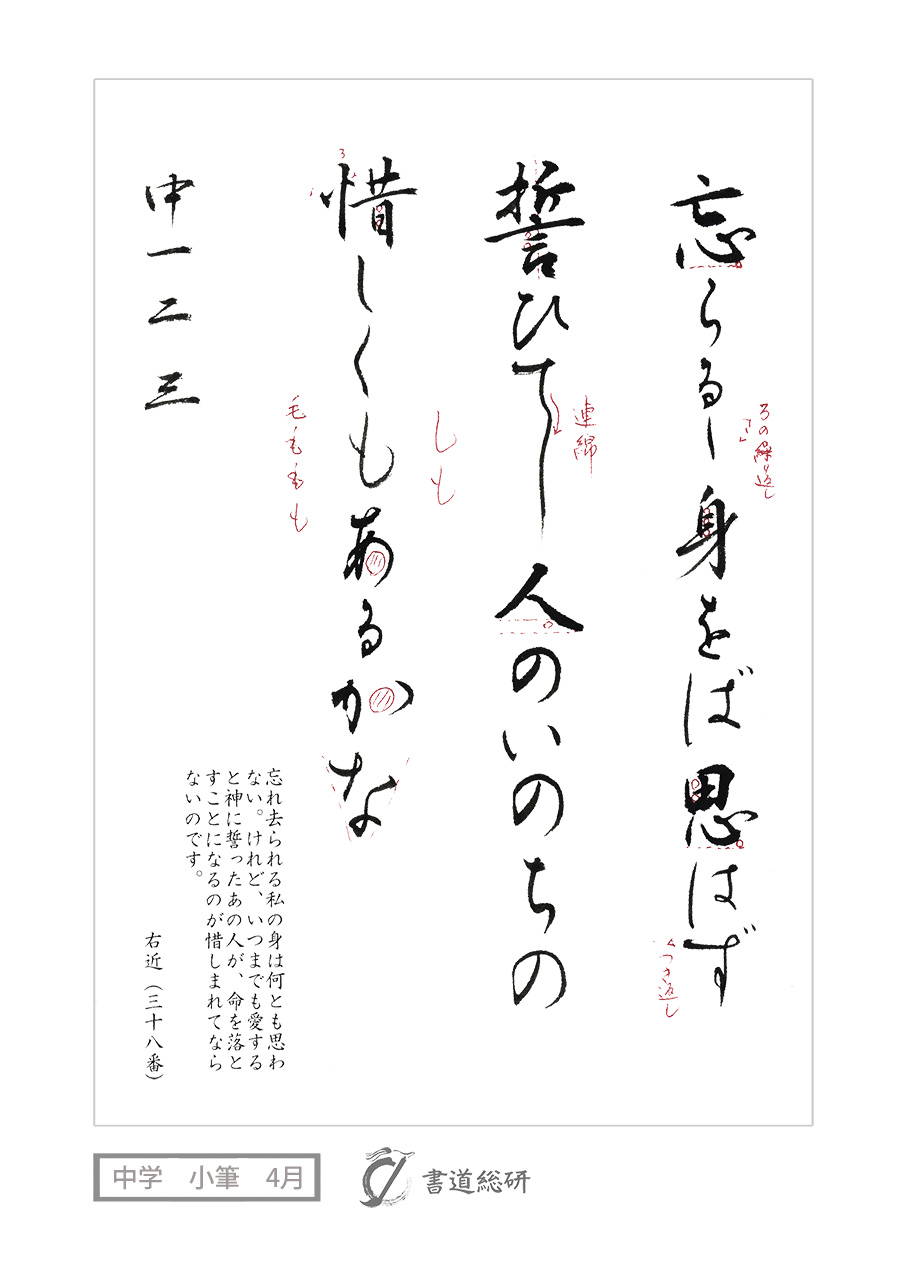 るの繰り返し
忘らるゝ身をば思はず
つき返し
連綿
誓ひてし人のいのちの
しも
惜しくもあるかな
中一二三
忘れ去られる私の身は何とも思わ
ない。けれど、いつまでも愛する
と神に誓ったあの人が、命を落と
すことになるのが惜しまれてなら
ないのです。
右近（三十八番）
中学　小筆　4月
書道総研